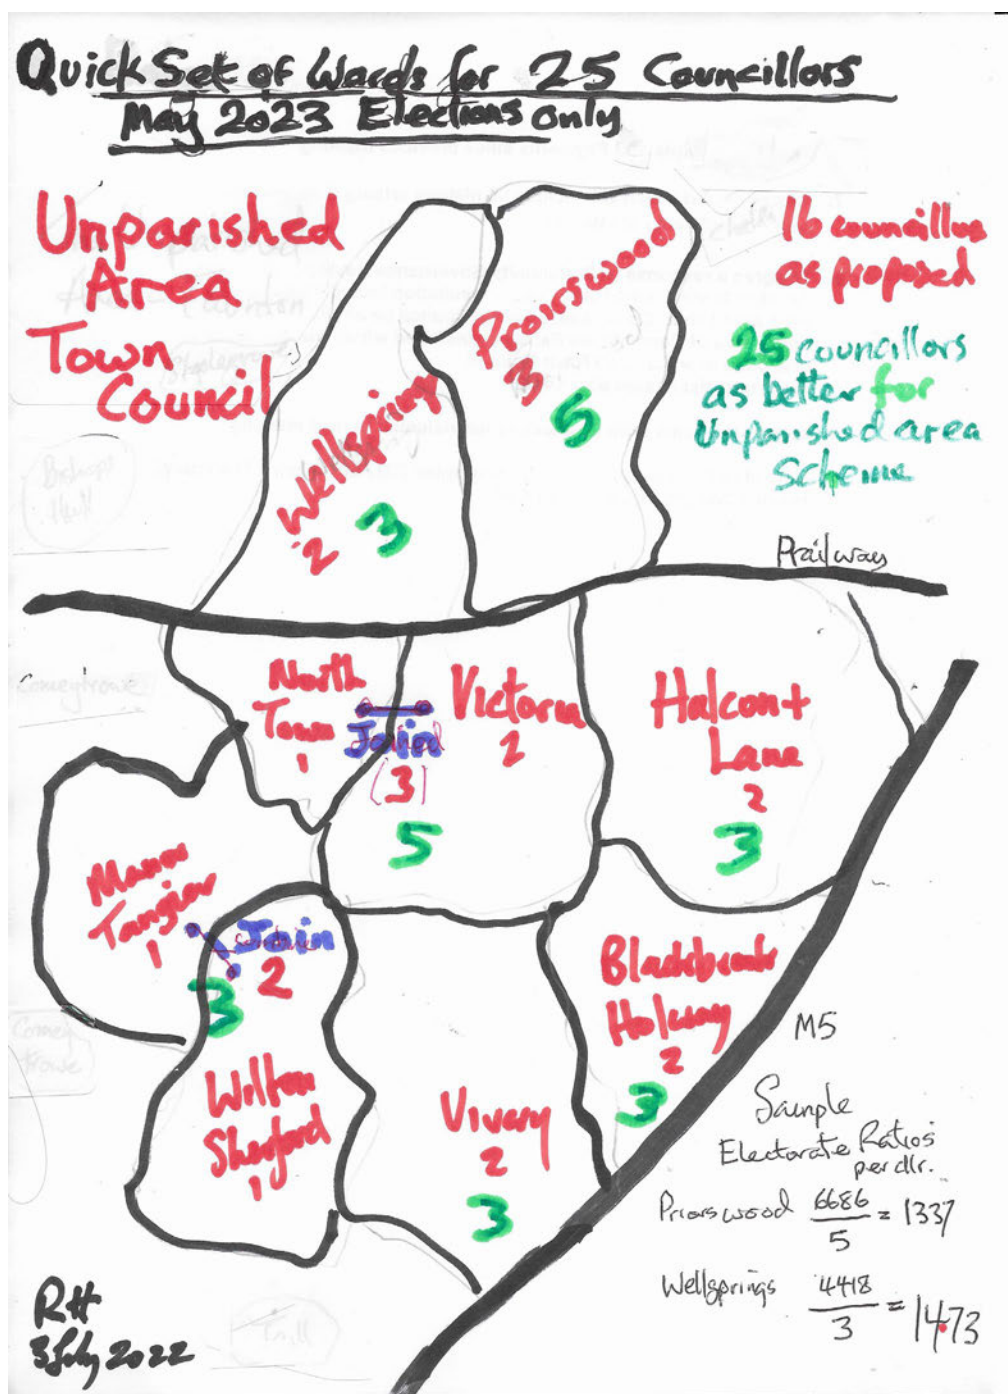 Quick Set of Wards for 25 Councillors
May 2023 Elections only
Unparished
Area
Town
Council
16 councillors
as proposed
25 councillors
as better for
Unparished area
Scheme
Priorswood
3
5
Wellsprings
2
3
Railway
North
Town
1
Join
(3)
5
Victoria
2
Halcon+
Lane
2
3
Manor
Tangier
1
Join
2
3
Wilton
Sherford
1
Vivery
2
3
Blackbrook
Holway
2
3
M5
Sample
Electorate Ratios
per cllr.
Priorswood 6686
5
= 1337
Wellsprings 4418
3
= 1473
RH
3 July 2022
Comeytrowe
Bishops
Hull
Comey
trowe
Trull